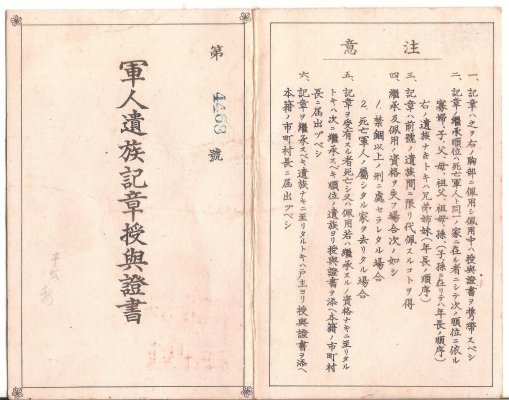 注意
一、記章ハ之ヲ右ノ胸部ニ佩用シ佩用中ハ授與證書ヲ携帶スベシ
二、記章ノ繼承順位ハ死亡軍人ト同一ノ家ニ在ル者ニシテ次ノ順位ニ依ル
寡婦、子、父、母、祖父、祖母、孫、(子孫ニ在リテハ年長ノ順序)
右ノ遺族ナキトキハ兄弟姉妹(年長ノ順序)
三、記章ハ前號ノ遺族間ニ限リ代佩スルコトヲ得
四、繼承及佩用ノ資格ヲ失フ場合次ノ如シ
1.禁錮以上ノ刑ニ處セラレタル場合
2.死亡軍人ノ屬シタル家ヲ去リタル場合
五、記章ヲ受有スル者死亡シ又ハ佩用若ハ繼承スルノ資格ナキニ至リタル
トキハ次ニ繼承スベキ順位ノ遺族ヨリ授與證書ヲ添ヘ本籍ノ市町村
長ニ屆出ヅベシ
六、記章ヲ繼承スベキ遺族ナキニ至リタルトキハ戸主ヨリ授與證書ヲ添ヘ
本籍ノ市町村長ニ屆出ヅベシ
第4468號
軍人遺族記章授與證書